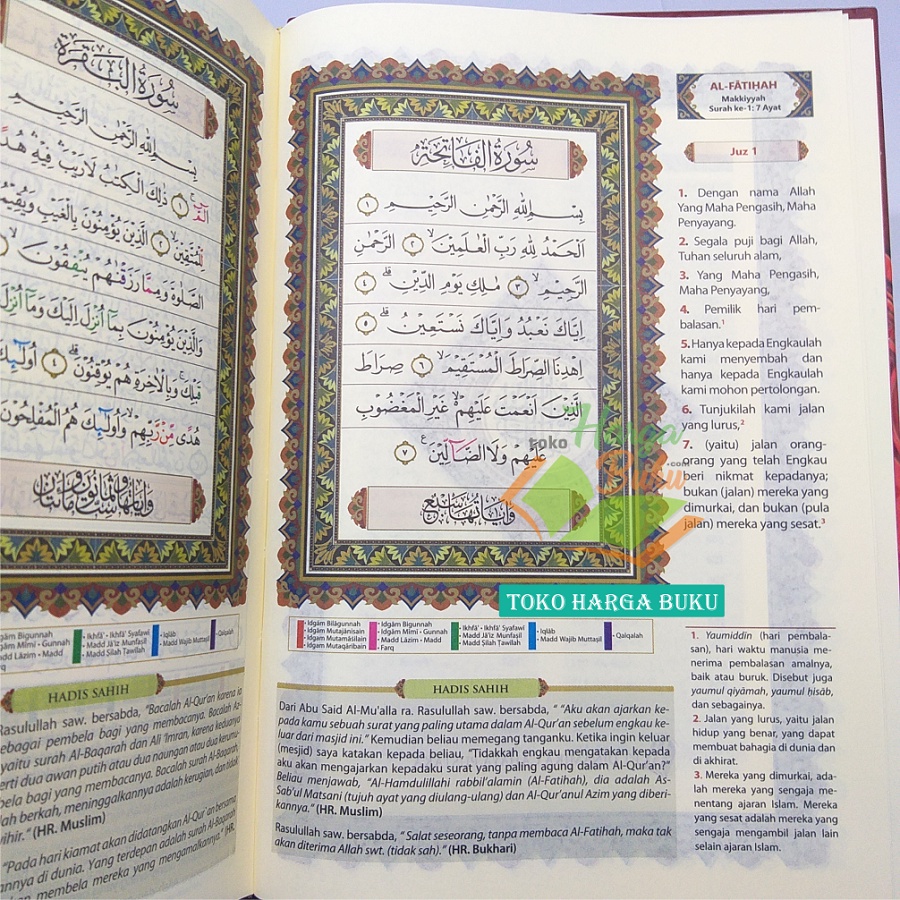 سُورَةُ الْبَقَرَةِ
بِسْمِ اللّٰهِ الرَّحْمٰنِ الرَّحِيْمِ
الۤمّۤ ۚ ١ ذٰلِكَ الْكِتٰبُ لَا رَيْبَ ۛ فِيْهِ ۛ هُدًى
لِّلْمُتَّقِيْنَ ۙ ٢ الَّذِيْنَ يُؤْمِنُوْنَ بِالْغَيْبِ وَيُقِيْمُوْنَ
الصَّلٰوةَ وَمِمَّا رَزَقْنٰهُمْ يُنْفِقُوْنَ ۙ
وَالَّذِيْنَ يُؤْمِنُوْنَ بِمَآ اُنْزِلَ اِلَيْكَ وَمَآ اُنْزِلَ
قَبْلِكَ ۚ وَبِالْاٰخِرَةِ هُمْ يُوْقِنُوْنَ ۗ ٤ اُولٰۤىِٕكَ
هُدًى مِّنْ رَّبِّهِمْ ۙ وَاُولٰۤىِٕكَ هُمُ الْمُفْلِحُوْنَ
Bigunnah
Mimi - Gunnah
Lāzim - Madd
Ikhfā' - Ikhfā' Syafawi
Madd Jā'iz Munfaṣil
Madd Ṣilah Ṭawilah
Iqlāb
Madd Wajib Muttaṣil
Qalqalah
HADIS SAHIH
Rasulullah saw. bersabda, "Bacalah Al-Qur'an karena ia
sebagai pembela bagi yang membacanya. Bacalah Az-
yaitu surah Al-Baqarah dan Ali 'Imran, karena keduanya
erti dua awan putih atau dua naungan atau dua kerumu-
bela bagi yang membacanya. Bacalah surah Al-Baqarah,
lah berkah, meninggalkannya adalah kerugian, dan tidak
ihir." (HR. Muslim)
"Pada hari kiamat akan didatangkan Al-Qur'an bersama
annya di dunia. Yang terdepan adalah surah Al-Baqarah
membela mereka yang mengamalkannya." (HR.
سُورَةُ الْفَاتِحَةِ
بِسْمِ اللّٰهِ الرَّحْمٰنِ الرَّحِيْمِ ١
اَلْحَمْدُ لِلّٰهِ رَبِّ الْعٰلَمِيْنَ ۙ ٢ الرَّحْمٰنِ
الرَّحِيْمِ ۙ ٣ مٰلِكِ يَوْمِ الدِّيْنِ ۗ ٤
اِيَّاكَ نَعْبُدُ وَاِيَّاكَ نَسْتَعِيْنُ ۗ ٥
اِهْدِنَا الصِّرَاطَ الْمُسْتَقِيْمَ ۙ ٦ صِرَاطَ
الَّذِيْنَ اَنْعَمْتَ عَلَيْهِمْ ۙ غَيْرِ الْمَغْضُوْبِ
عَلَيْهِمْ وَلَا الضَّاۤلِّيْنَ ࣖ ٧
وَاٰيَاتُهَا سَبْعٌ
toko Harga Buku .com
TOKO HARGA BUKU
Idgām Bilāgunnah
Idgām Mutajānisain
Idgām Mutamāṡilain
Idgām Mutaqāribain
Idgām Bigunnah
Idgām Mīmī - Gunnah
Madd Lāzim - Madd
Farq
Ikhfā' - Ikhfā' Syafawi
Madd Jā'iz Munfaṣil
Madd Ṣilah Ṭawilah
Iqlāb
Madd Wajib Muttaṣil
Qalqalah
HADIS SAHIH
Dari Abu Said Al-Mu'alla ra. Rasulullah saw. bersabda, " "Aku akan ajarkan ke-
pada kamu sebuah surat yang paling utama dalam Al-Qur'an sebelum engkau ke-
luar dari masjid ini." Kemudian beliau memegang tanganku. Ketika ingin keluar
(mesjid) saya katakan kepada beliau, "Tidakkah engkau mengatakan kepada
aku akan mengajarkan kepadaku surat yang paling agung dalam Al-Qur'an?"
Beliau menjawab, "Al-Hamdulillahi rabbil'alamin (Al-Fatihah), dia adalah As-
Sab'ul Matsani (tujuh ayat yang diulang-ulang) dan Al-Qur'anul Azim yang diberi-
kannya." (HR. Muslim)
Rasulullah saw. bersabda, " Salat seseorang, tanpa membaca Al-Fatihah, maka tak
akan diterima Allah swt. (tidak sah)." (HR. Bukhari)
AL-FĀTIḤAH
Makkiyyah
Surah ke-1: 7 Ayat
Juz 1
1. Dengan nama Allah
Yang Maha Pengasih, Maha
Penyayang.
2. Segala puji bagi Allah,
Tuhan seluruh alam,
3. Yang Maha Pengasih,
Maha Penyayang,
4. Pemilik hari pem-
balasan.¹
5. Hanya kepada Engkaulah
kami menyembah dan
hanya kepada Engkaulah
kami mohon pertolongan.
6. Tunjukilah kami jalan
yang lurus,²
7. (yaitu) jalan orang-
orang yang telah Engkau
beri nikmat kepadanya;
bukan (jalan) mereka yang
dimurkai, dan bukan (pula
jalan) mereka yang sesat.³
1. Yaumiddin (hari pembala-
san), hari waktu manusia me-
nerima pembalasan amalnya,
baik atau buruk. Disebut juga
yaumul qiyāmah, yaumul ḥisāb,
dan sebagainya.
2. Jalan yang lurus, yaitu jalan
hidup yang benar, yang dapat
membuat bahagia di dunia dan
di akhirat.
3. Mereka yang dimurkai, ada-
lah mereka yang sengaja me-
nentang ajaran Islam. Mereka
yang sesat adalah mereka yang
sengaja mengambil jalan lain
selain ajaran Islam.